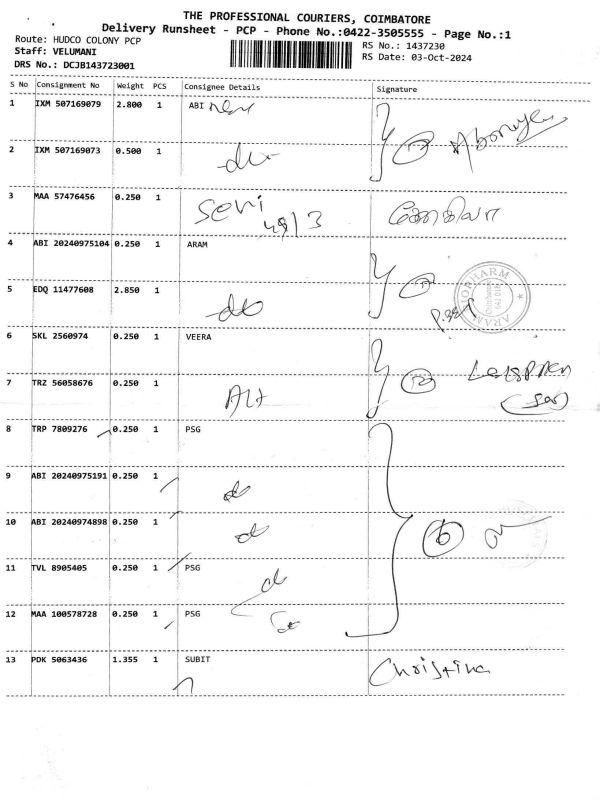 THE PROFESSIONAL COURIERS, COIMBATORE
Delivery Runsheet - PCP - Phone No.:0422-3505555 - Page No.:1
Route: HUDCO COLONY PCP
RS No.: 1437230
Staff: VELUMANI
RS Date: 03-Oct-2024
DRS No.: DCJB143723001
S No Consignment No Weight PCS Consignee Details Signature
1 IXM 507169079 2.800 1 ABI
2 IXM 507169073 0.500 1
3 MAA 57476456 0.250 1
4 ABI 20240975104 0.250 1 ARAM
5 EDQ 11477608 2.850 1 do
6 SKL 2560974 0.250 1 VEERA
7 TRZ 56058676 0.250 1
8 TRP 7809276 0.250 1 PSG
9 ABI 20240975191 0.250 1 do
10 ABI 20240974898 0.250 1 do
11 TVL 8905405 0.250 1 PSG do
12 MAA 100578728 0.250 1 PSG
13 PDK 5063436 1.355 1 SUBIT Christina